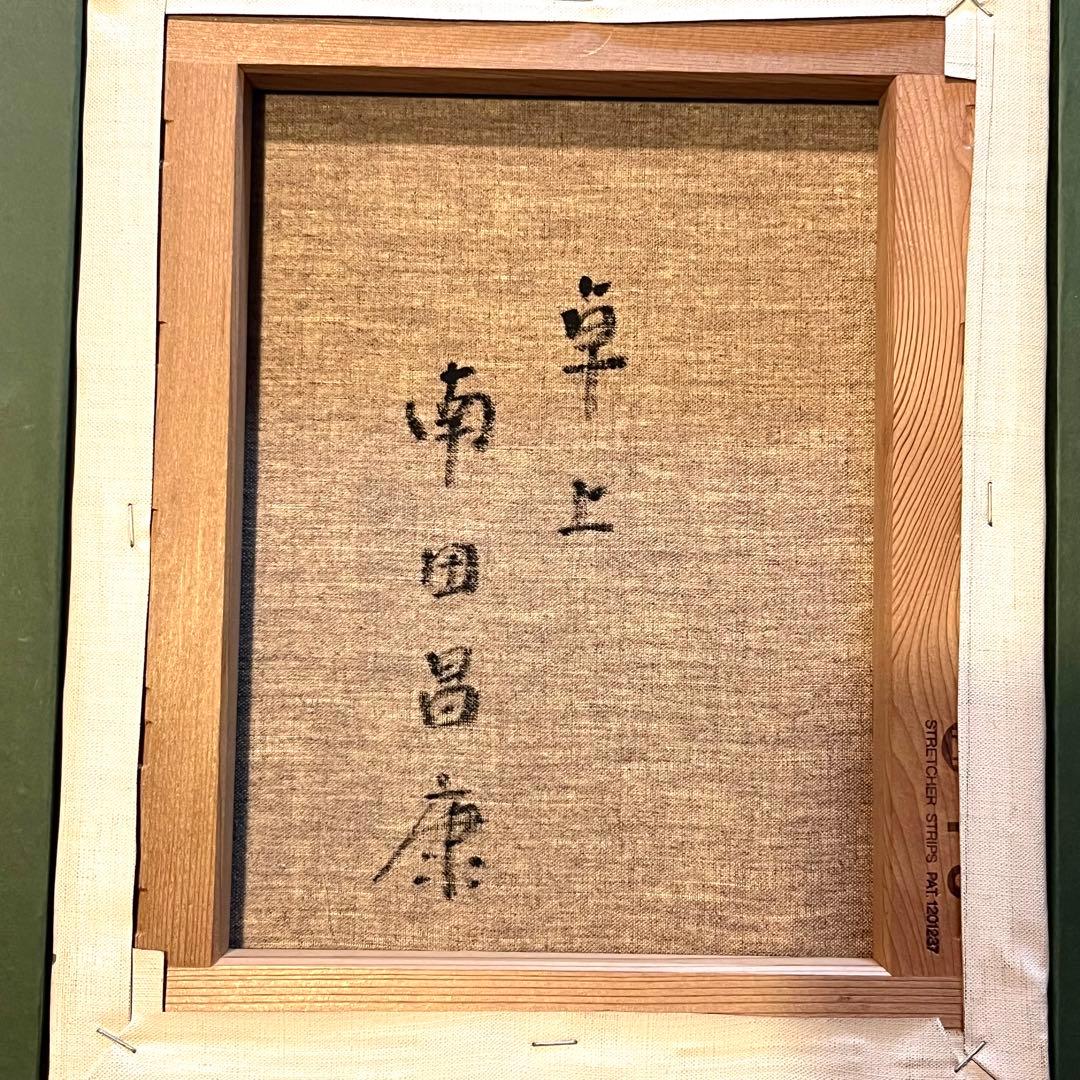 卓上
南田昌康
STRETCHER STRIPS PAT. 1201237